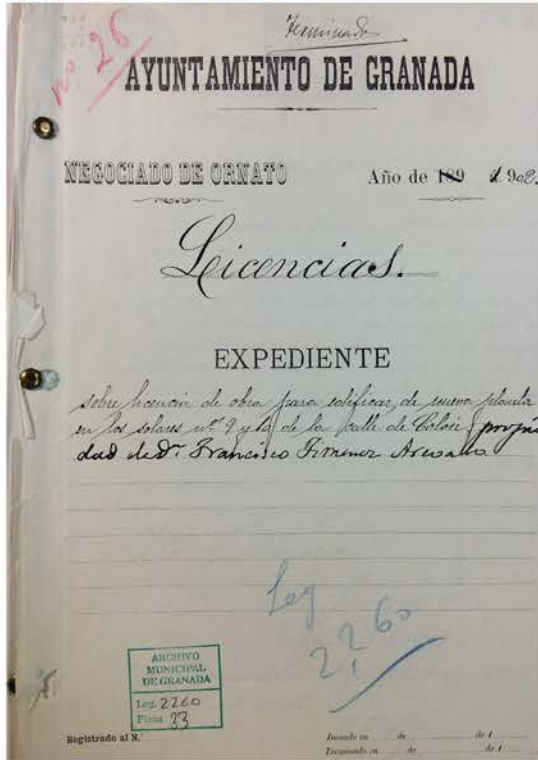 Terminado
nº 26
AYUNTAMIENTO DE GRANADA
NEGOCIADO DE ORNATO
Año de 189 1902.
Licencias.
EXPEDIENTE
sobre licencia de obra para edificar de nueva planta
en los solares nº 9 y de la calle de Colón propie
dad de Dn. Francisco Jimenez Arevalo
Leg
2,260
ARCHIVO
MUNICIPAL
DE GRANADA
Leg. 2260
Pieza 33
Registrado al N.
Incoado en de de 1
Terminado en de de 1